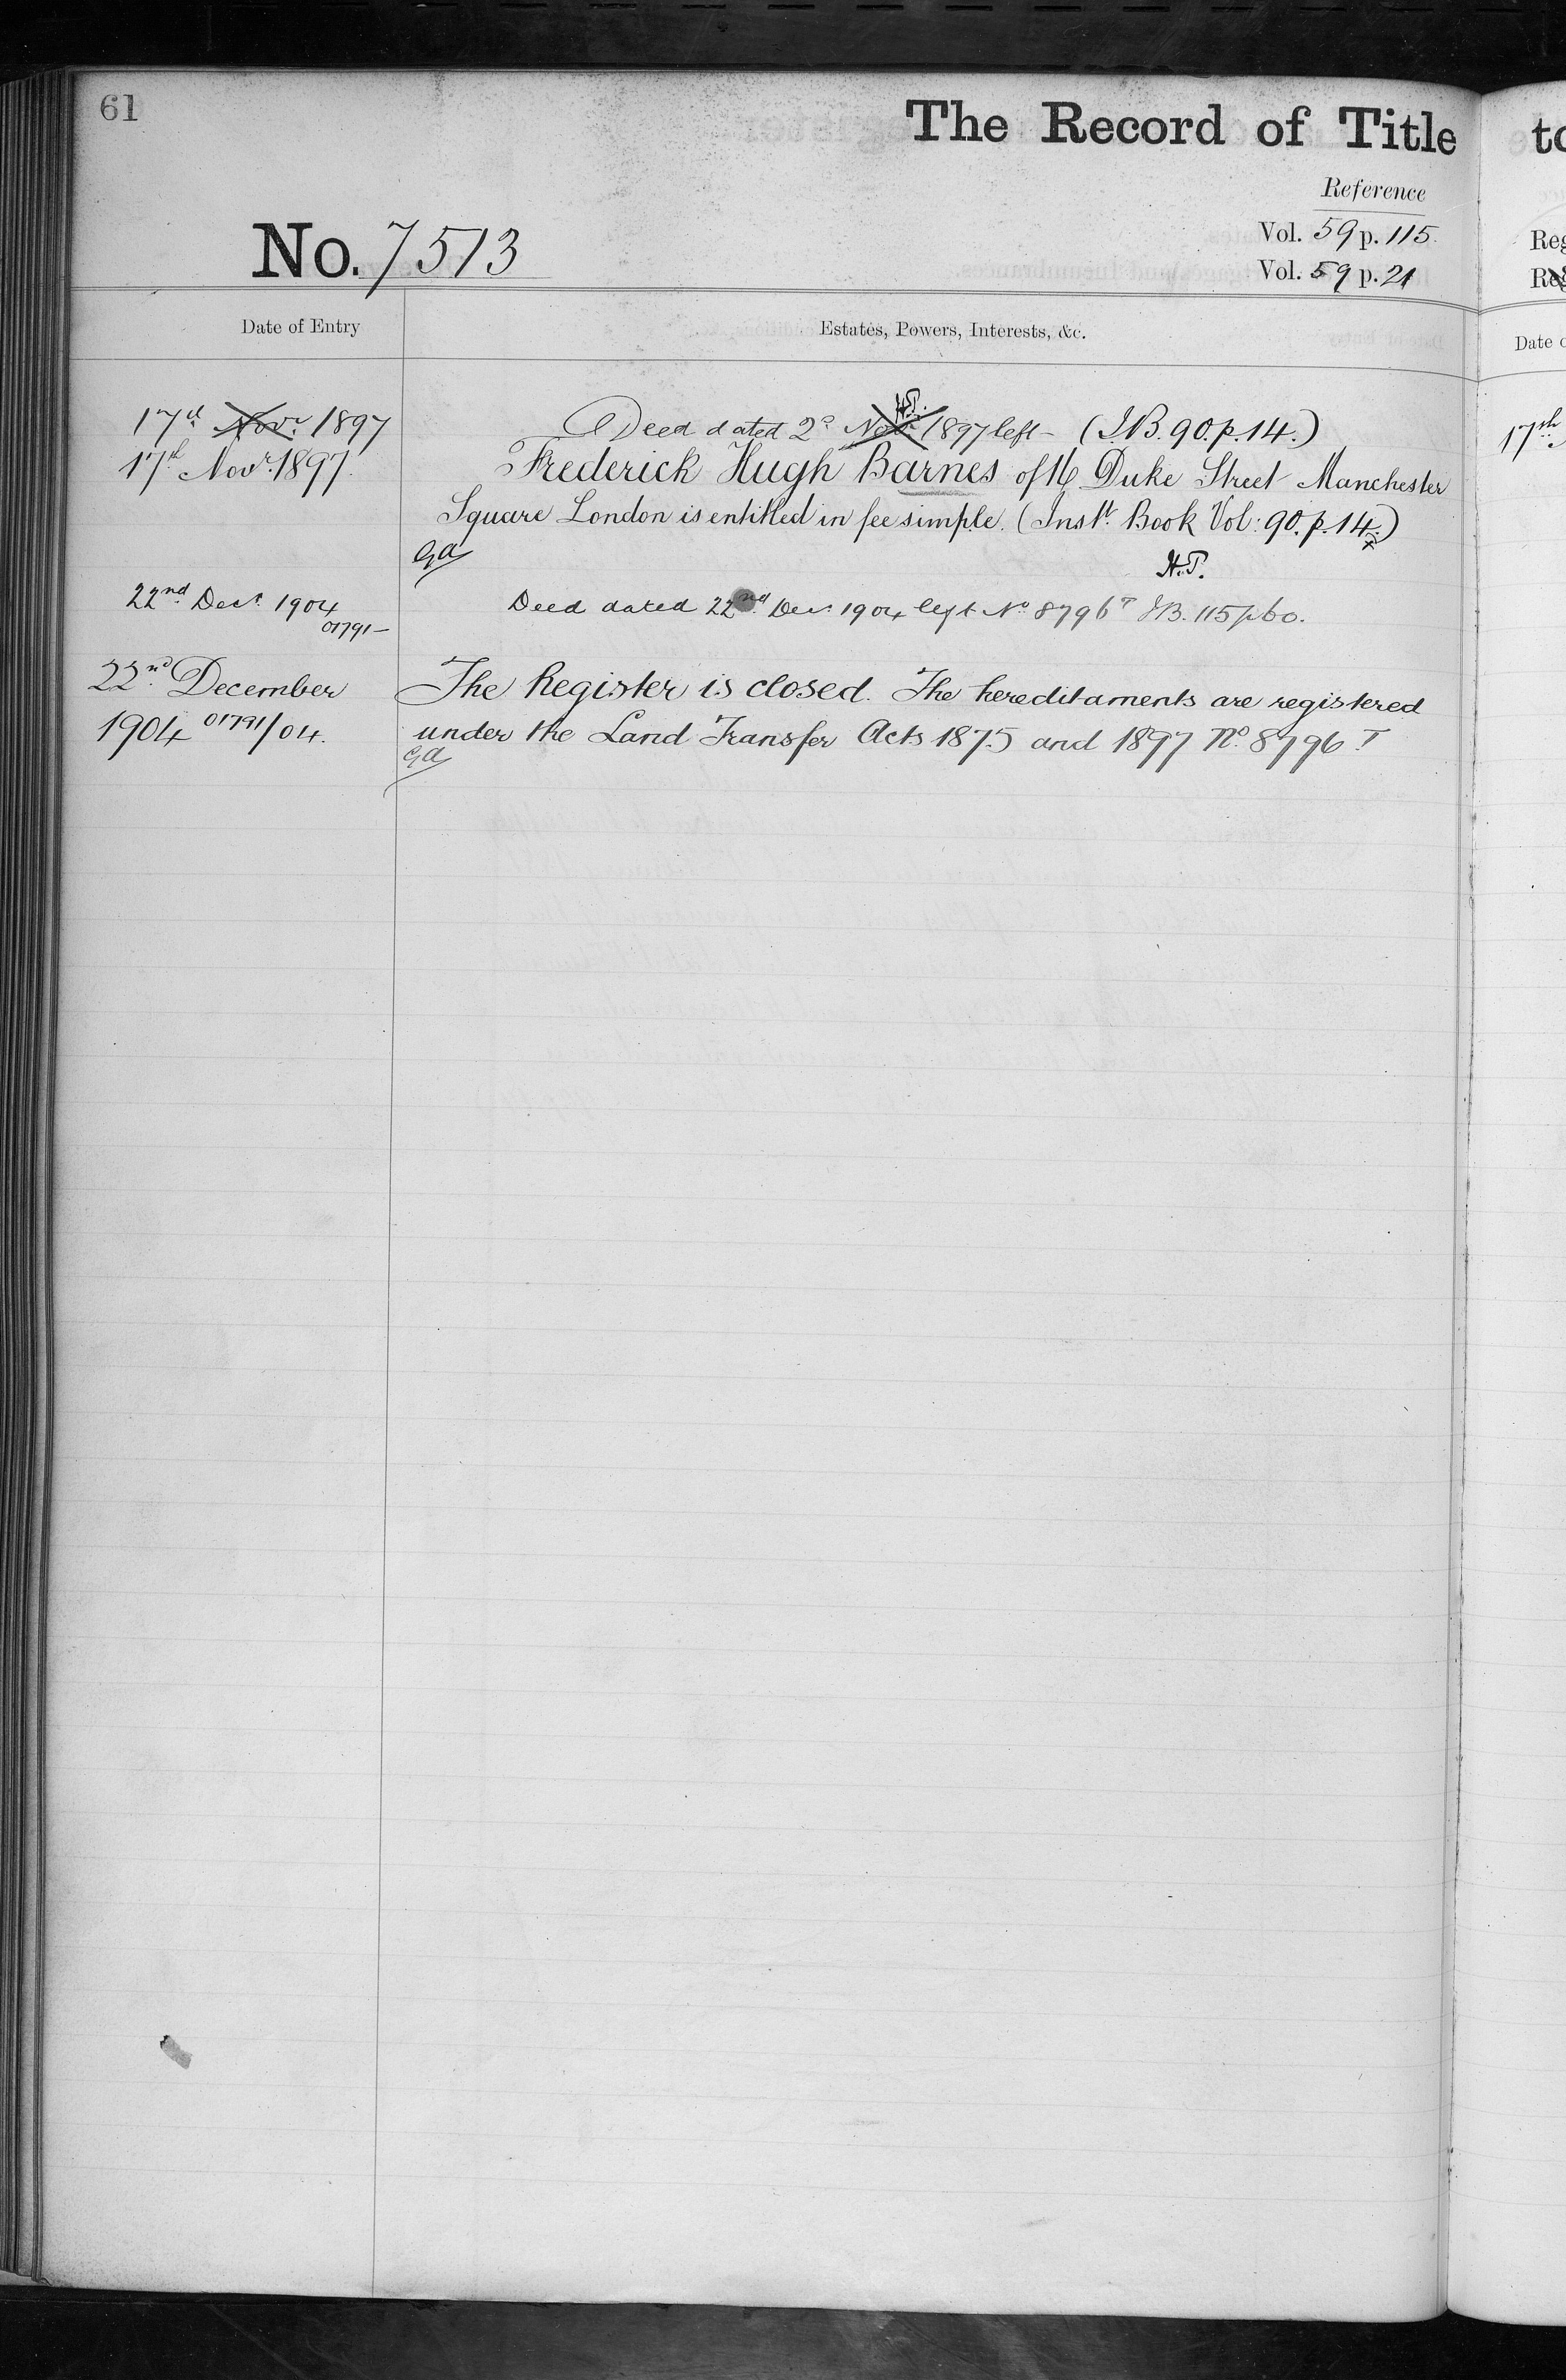 61
The Record of Title
to
Reference
No. 7513
Vol. 59 p. 115.
Vol. 59 p. 21
Reg
Reg
Date of Entry
Estates, Powers, Interests, &c.
Date o
17th Novr. 1897
H.T.
A Deed dated 2d Novr 1897 left – (I.B. 90. p. 14.)
17th
17th Novr. 1897.
Frederick Hugh Barnes of 16 Duke Street Manchester
Square London is entitled in fee simple. (Inst. Book Vol: 90. p. 14.)
GA
H.T.
22nd Decr. 1904
01791–
Deed dated 22nd Decr. 1904 left No. 8796T I.B. 115 p 60.
22nd December
The Register is closed. The hereditaments are registered
1904 01791/04.
under the Land Transfer Acts 1875 and 1897 No. 8796 T
GA